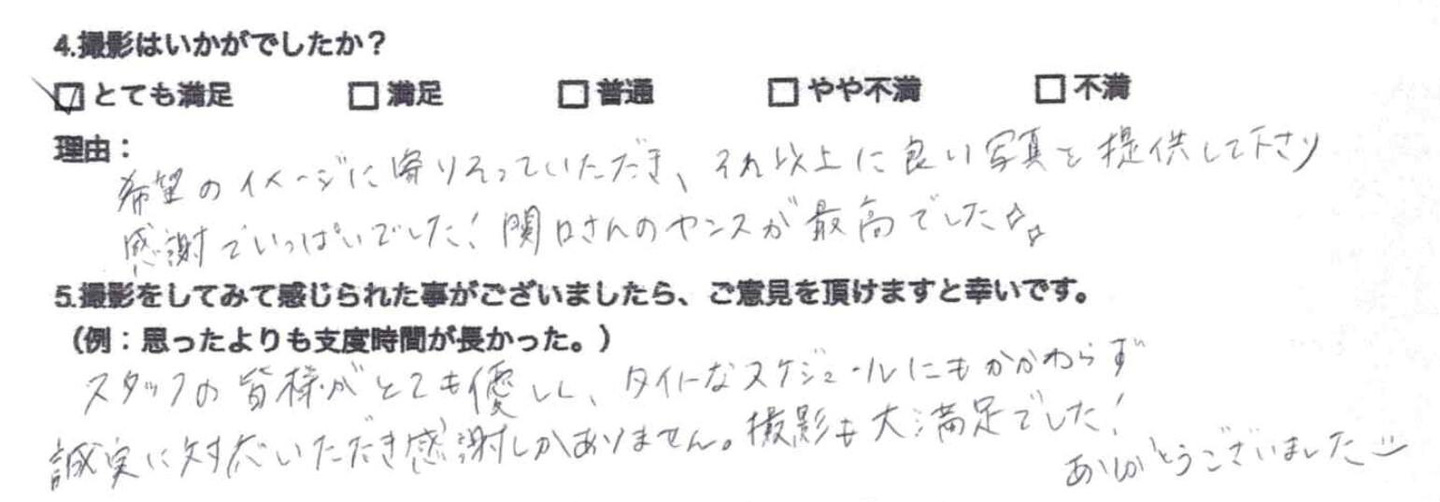 4.撮影はいかがでしたか？
☑とても満足 □満足 □普通 □やや不満 □不満
理由：
希望のイメージに寄りそっていただき、それ以上に良い写真を提供して下さり
感謝でいっぱいでした！関口さんのセンスが最高でした☆☆
5.撮影をしてみて感じられた事がございましたら、ご意見を頂けますと幸いです。
（例：思ったよりも支度時間が長かった。）
スタッフの皆様がとても優しく、タイトなスケジュールにもかかわらず
誠実に対応いただき感謝しかありません。撮影も大満足でした！
ありがとうございました